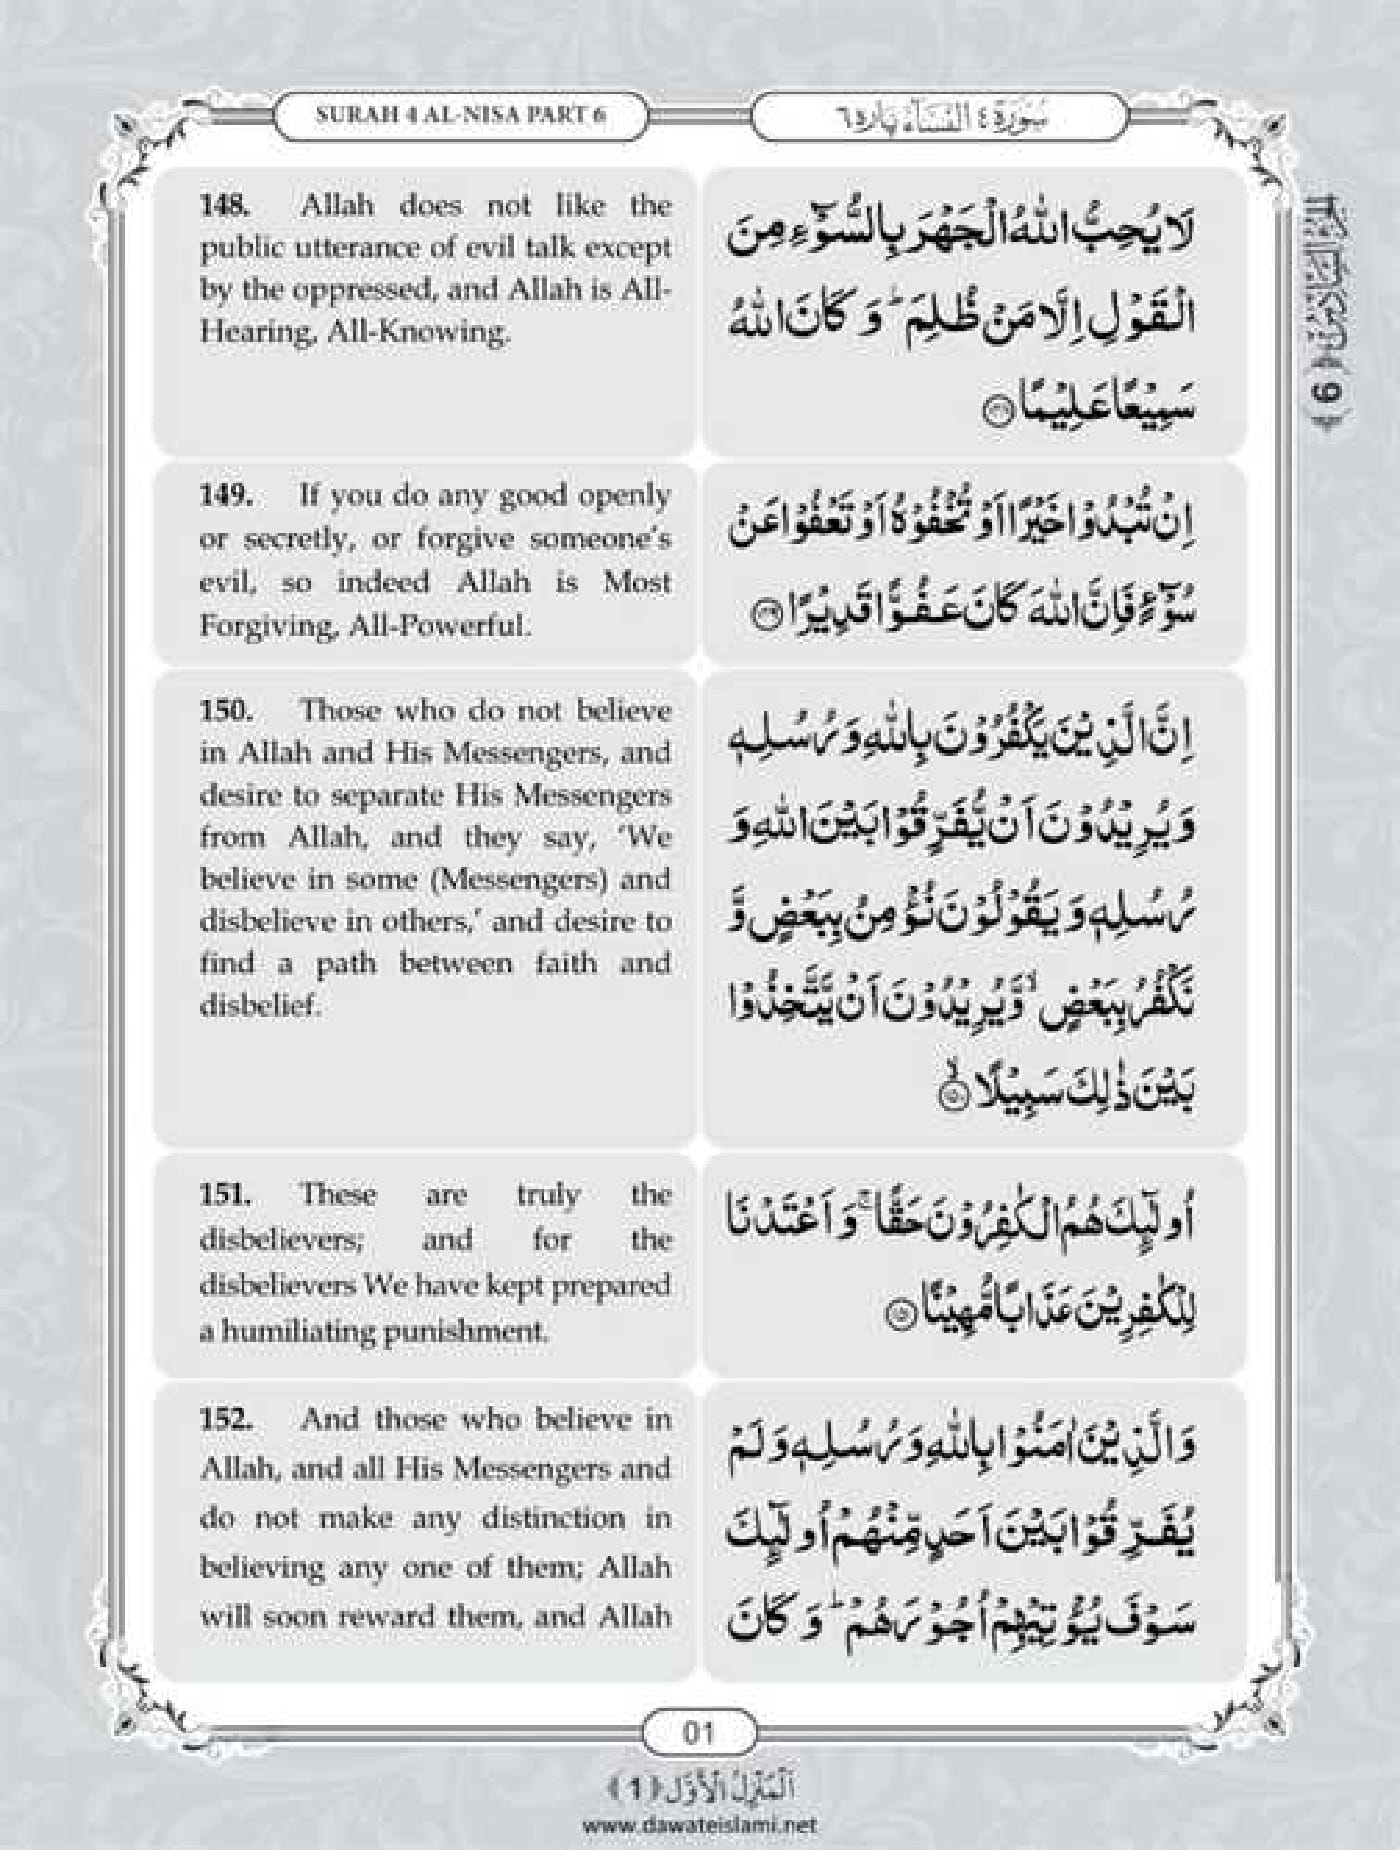 SURAH 4 AL-NISA PART 6
سُوْرَة ٤ النِّسَآء پاره ٦
148. Allah does not like the
public utterance of evil talk except
by the oppressed, and Allah is All-
Hearing, All-Knowing.
لَا يُحِبُّ اللّٰهُ الْجَهْرَ بِالسُّوْٓءِ مِنَ
الْقَوْلِ اِلَّا مَنْ ظُلِمَ ؕ وَ كَانَ اللّٰهُ
سَمِيْعًا عَلِيْمًا ﴿۱۴۸﴾
149. If you do any good openly
or secretly, or forgive someone's
evil, so indeed Allah is Most
Forgiving, All-Powerful.
اِنْ تُبْدُوْا خَيْرًا اَوْ تُخْفُوْهُ اَوْ تَعْفُوْا عَنْ
سُوْٓءٍ فَاِنَّ اللّٰهَ كَانَ عَفُوًّا قَدِيْرًا ﴿۱۴۹﴾
150. Those who do not believe
in Allah and His Messengers, and
desire to separate His Messengers
from Allah, and they say, ‘We
believe in some (Messengers) and
disbelieve in others,’ and desire to
find a path between faith and
disbelief.
اِنَّ الَّذِيْنَ يَكْفُرُوْنَ بِاللّٰهِ وَ رُسُلِهٖ
وَ يُرِيْدُوْنَ اَنْ يُّفَرِّقُوْا بَيْنَ اللّٰهِ وَ
رُسُلِهٖ وَ يَقُوْلُوْنَ نُؤْمِنُ بِبَعْضٍ وَّ
نَكْفُرُ بِبَعْضٍ ۙ وَّ يُرِيْدُوْنَ اَنْ يَّتَّخِذُوْا
بَيْنَ ذٰلِكَ سَبِيْلًا ﴿۱۵۰﴾ۙ
151. These are truly the
disbelievers; and for the
disbelievers We have kept prepared
a humiliating punishment.
اُولٰٓئِكَ هُمُ الْكٰفِرُوْنَ حَقًّا ۚ وَ اَعْتَدْنَا
لِلْكٰفِرِيْنَ عَذَابًا مُّهِيْنًا ﴿۱۵۱﴾
152. And those who believe in
Allah, and all His Messengers and
do not make any distinction in
believing any one of them; Allah
will soon reward them, and Allah
وَ الَّذِيْنَ اٰمَنُوْا بِاللّٰهِ وَ رُسُلِهٖ وَ لَمْ
يُفَرِّقُوْا بَيْنَ اَحَدٍ مِّنْهُمْ اُولٰٓئِكَ
سَوْفَ يُؤْتِيْهِمْ اُجُوْرَهُمْ ؕ وَ كَانَ
اَلْجُزْءُ السَّادِسُ ﴿6﴾
01
اَلْمَنْزِلُ الْاَوَّل ﴿1﴾
www.dawateislami.net